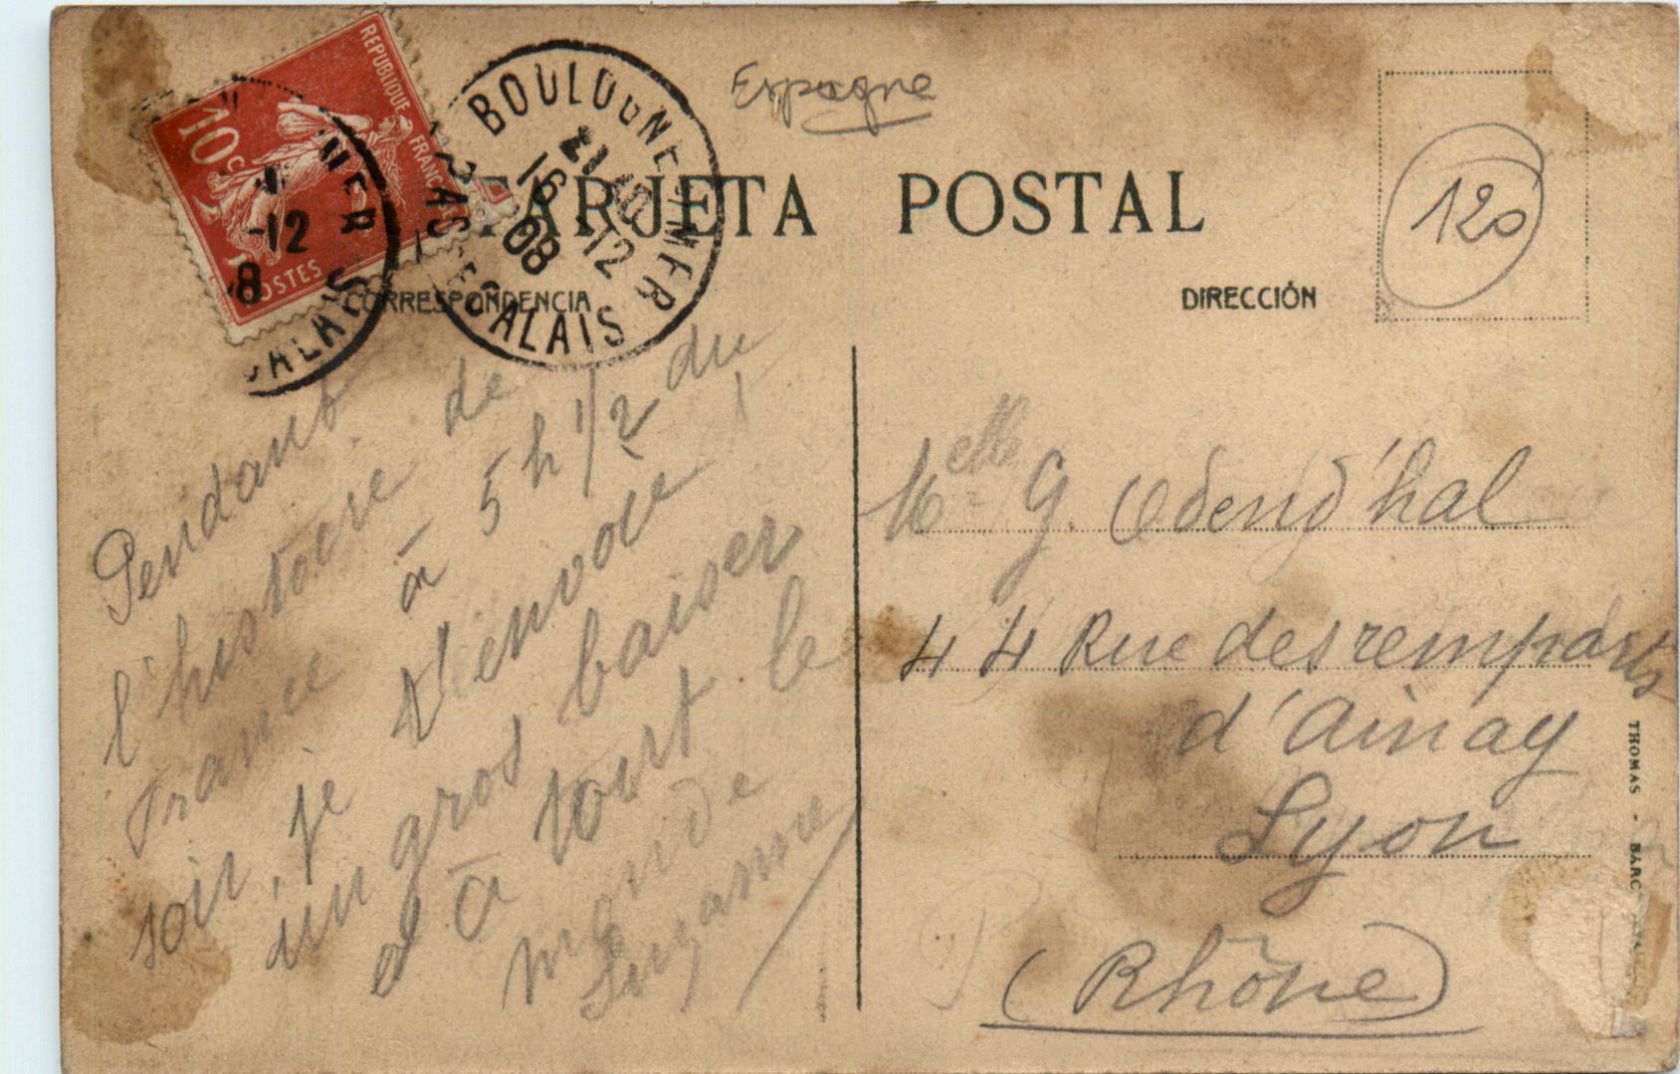 Espagne
TARJETA POSTAL
120
CORRESPONDENCIA
DIRECCIÓN
REPUBLIQUE FRANÇ
10c
POSTES
MER
-12
8
CALAIS
BOULOGNE S MER
21 10
16 -12
08
PAS DE CALAIS
Pendant
l'histoire de
France à 5 h 1/2 du
soir, je t'envoie
un gros baiser
et à tout le
monde
Suzanne
Melle G. Odend'hal
44 Rue des remparts
d'Ainay
Lyon
(Rhône)
THOMAS - BARC